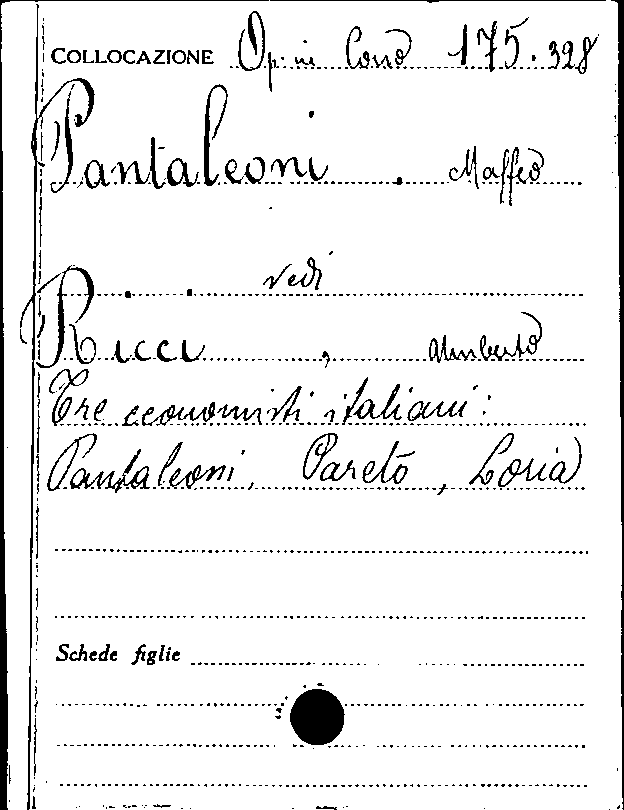 COLLOCAZIONE Op. in Cons 175.398
Pantaleoni . Maffeo
vedi
Ricci , Umberto
Tre economisti italiani:
Pantaleoni, Pareto, Loria
Schede figlie